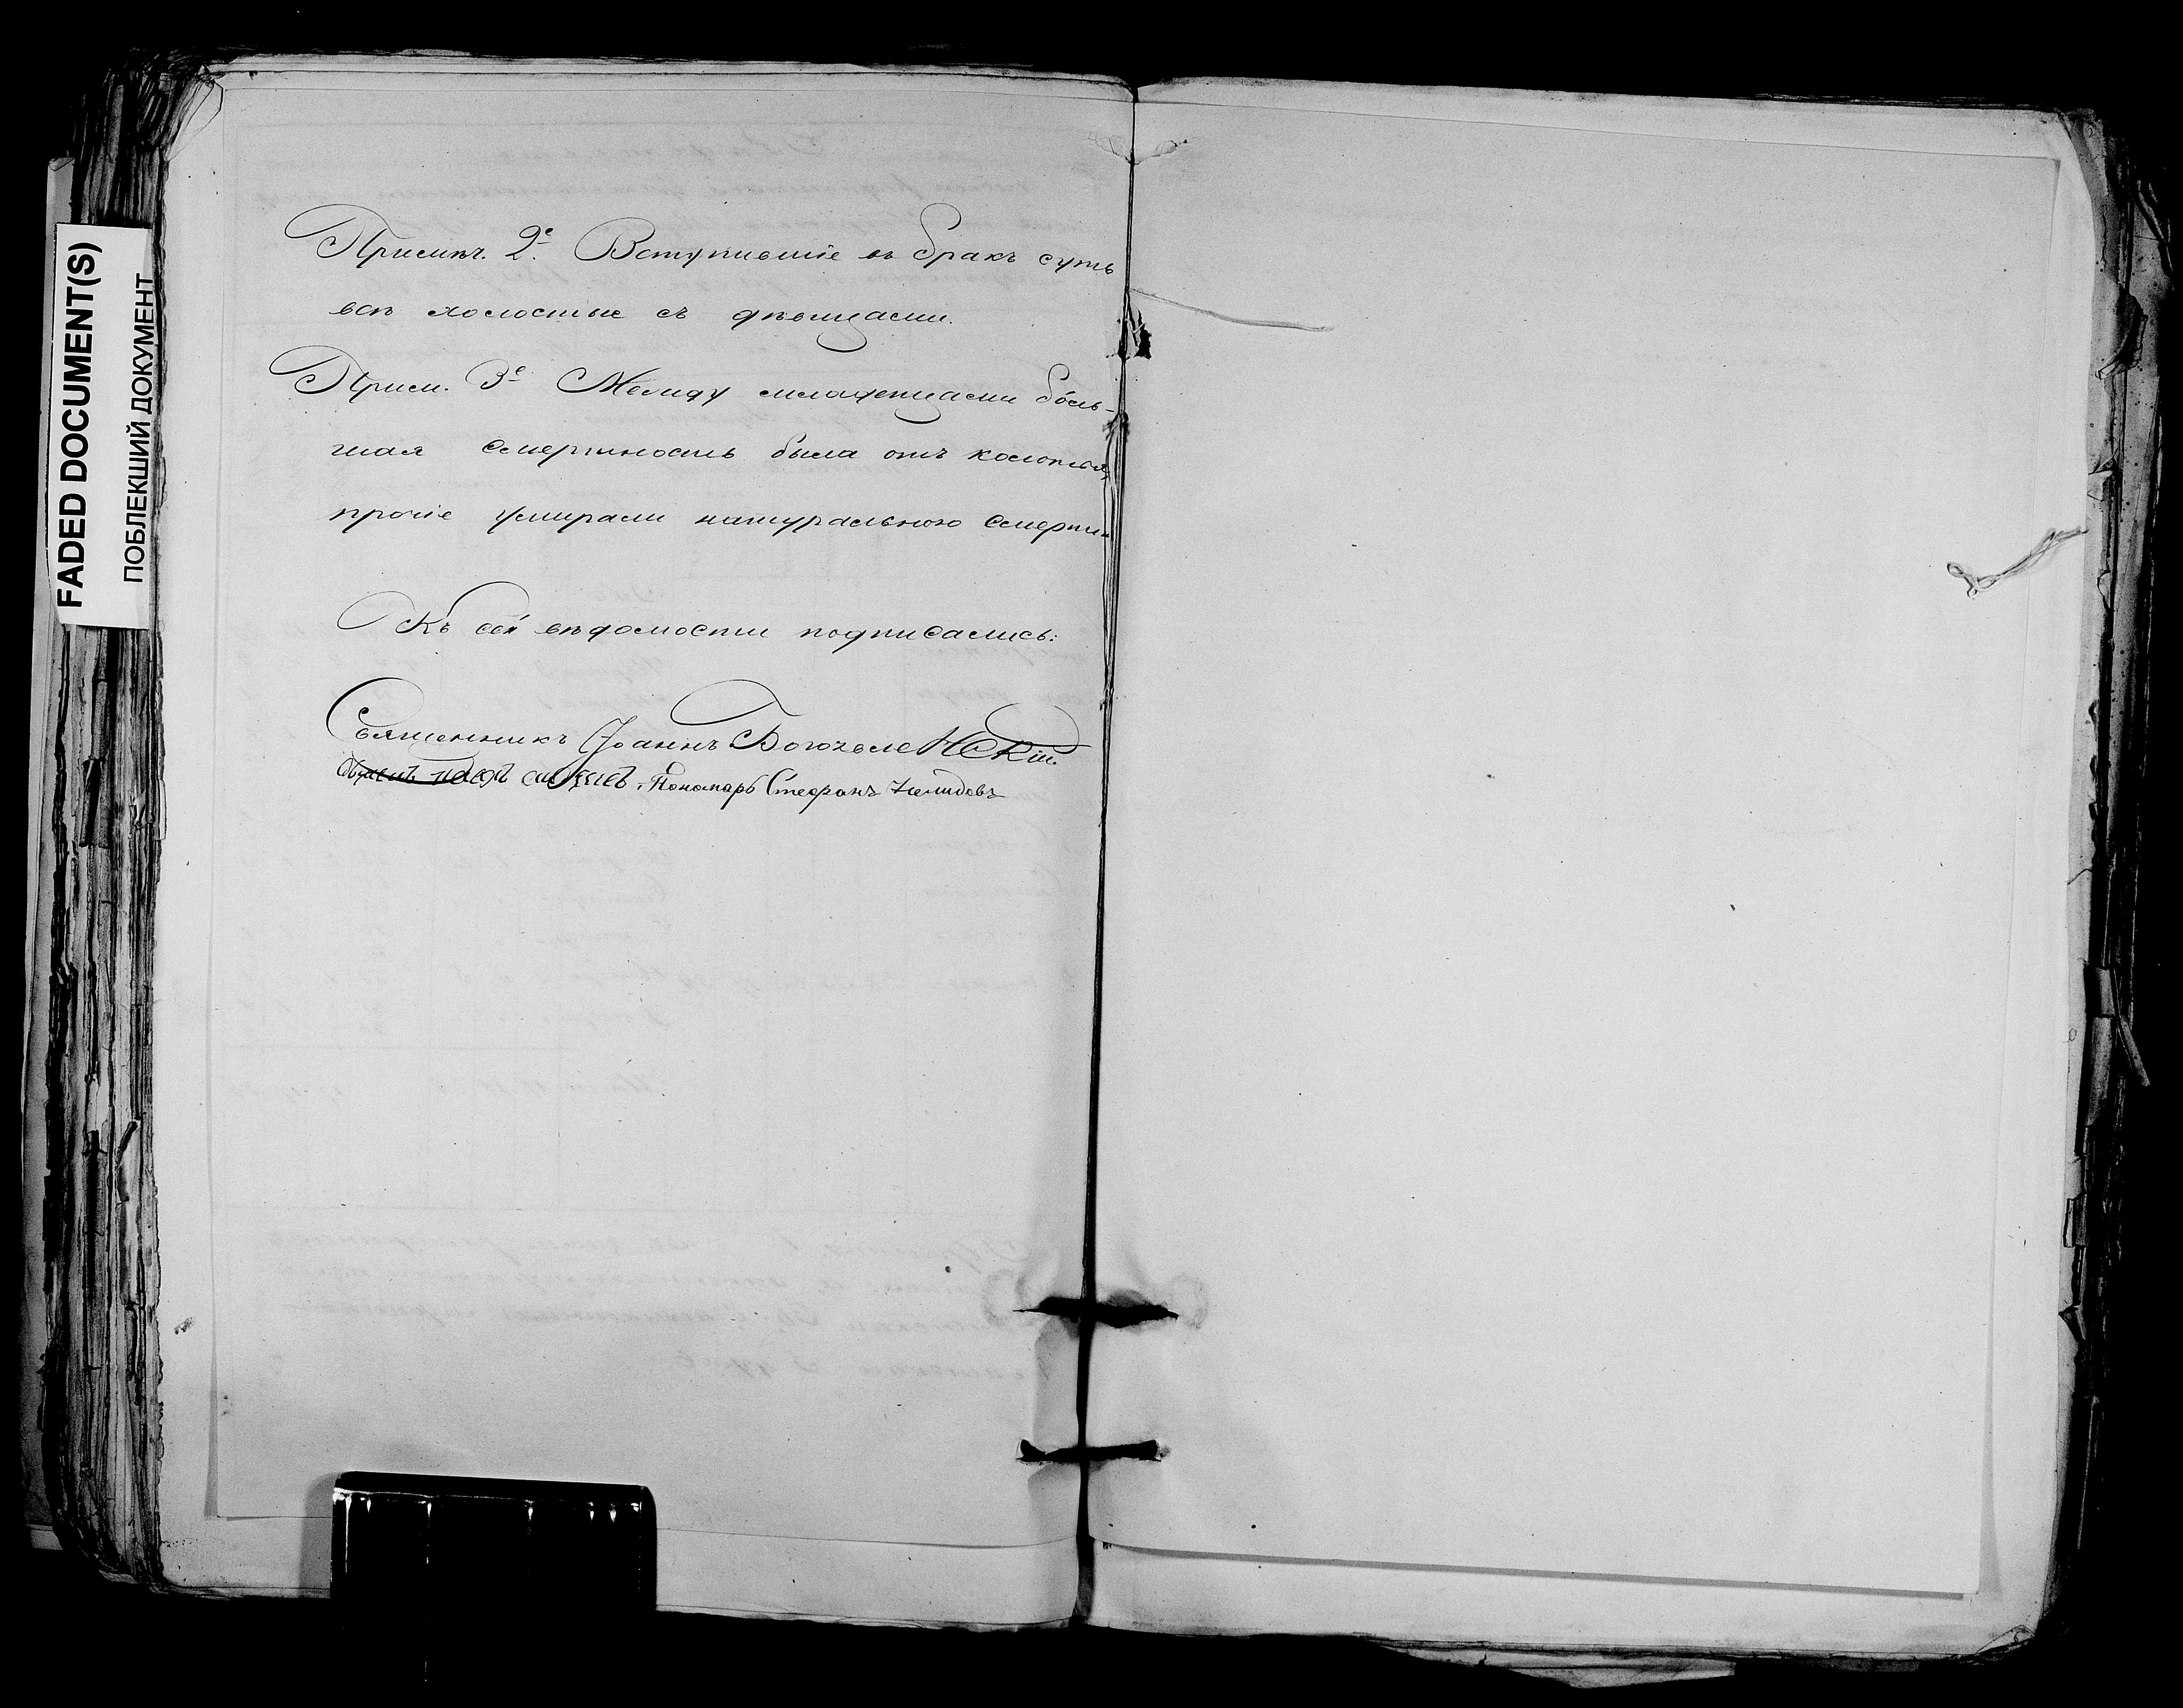 FADED DOCUMENT(S)
ПОБЛЕКШИЙ ДОКУМЕНТ
Примѣч. 2е. Вступившіе въ бракъ суть
всѣ холостые съ дѣвицами.
Прим. 3е Между младенцами боль-
шая смертность была отъ колотья,
прочіе умирали натуральною смертію.
Къ сей вѣдомости подписались:
Священникъ Іоаннъ Богоявленскій
Пономарь Стефанъ